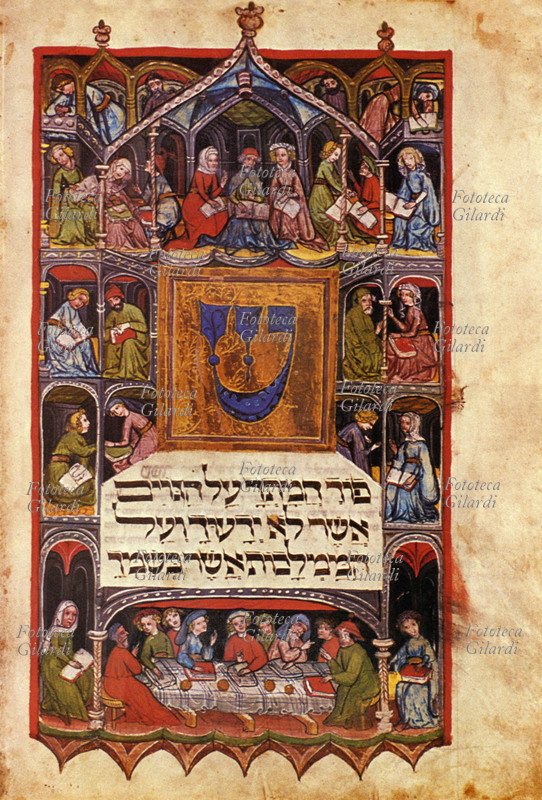 Fototeca
Gilardi
Fototeca
Gilardi
Fototeca
Gilardi
Fototeca
Gilardi
Fototeca
Gilardi
Fototeca
Gilardi
Fototeca
Gilardi
Fototeca
Gilardi
Fototeca
Gilardi
Fototeca
Gilardi
ש
פוך חמתך על הגויים
אשר לא ידעוך ועל
ממלכות אשר בשמך
Fototeca
Gilardi
Fototeca
Gilardi
Fototeca
Gilardi
Fototeca
Gilardi
Fototeca
Gilardi
Fototeca
Gilardi
Fototeca
Gilardi
Fototeca
Gilardi